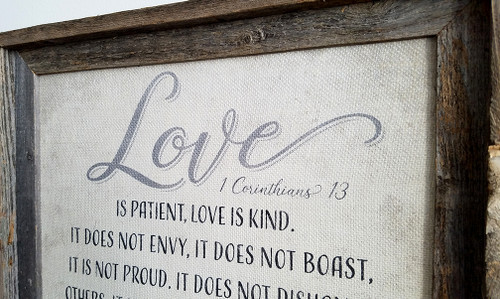 Love
1 Corinthians 13
IS PATIENT, LOVE IS KIND.
IT DOES NOT ENVY, IT DOES NOT BOAST,
IT IS NOT PROUD. IT DOES NOT
OTHERS, IT